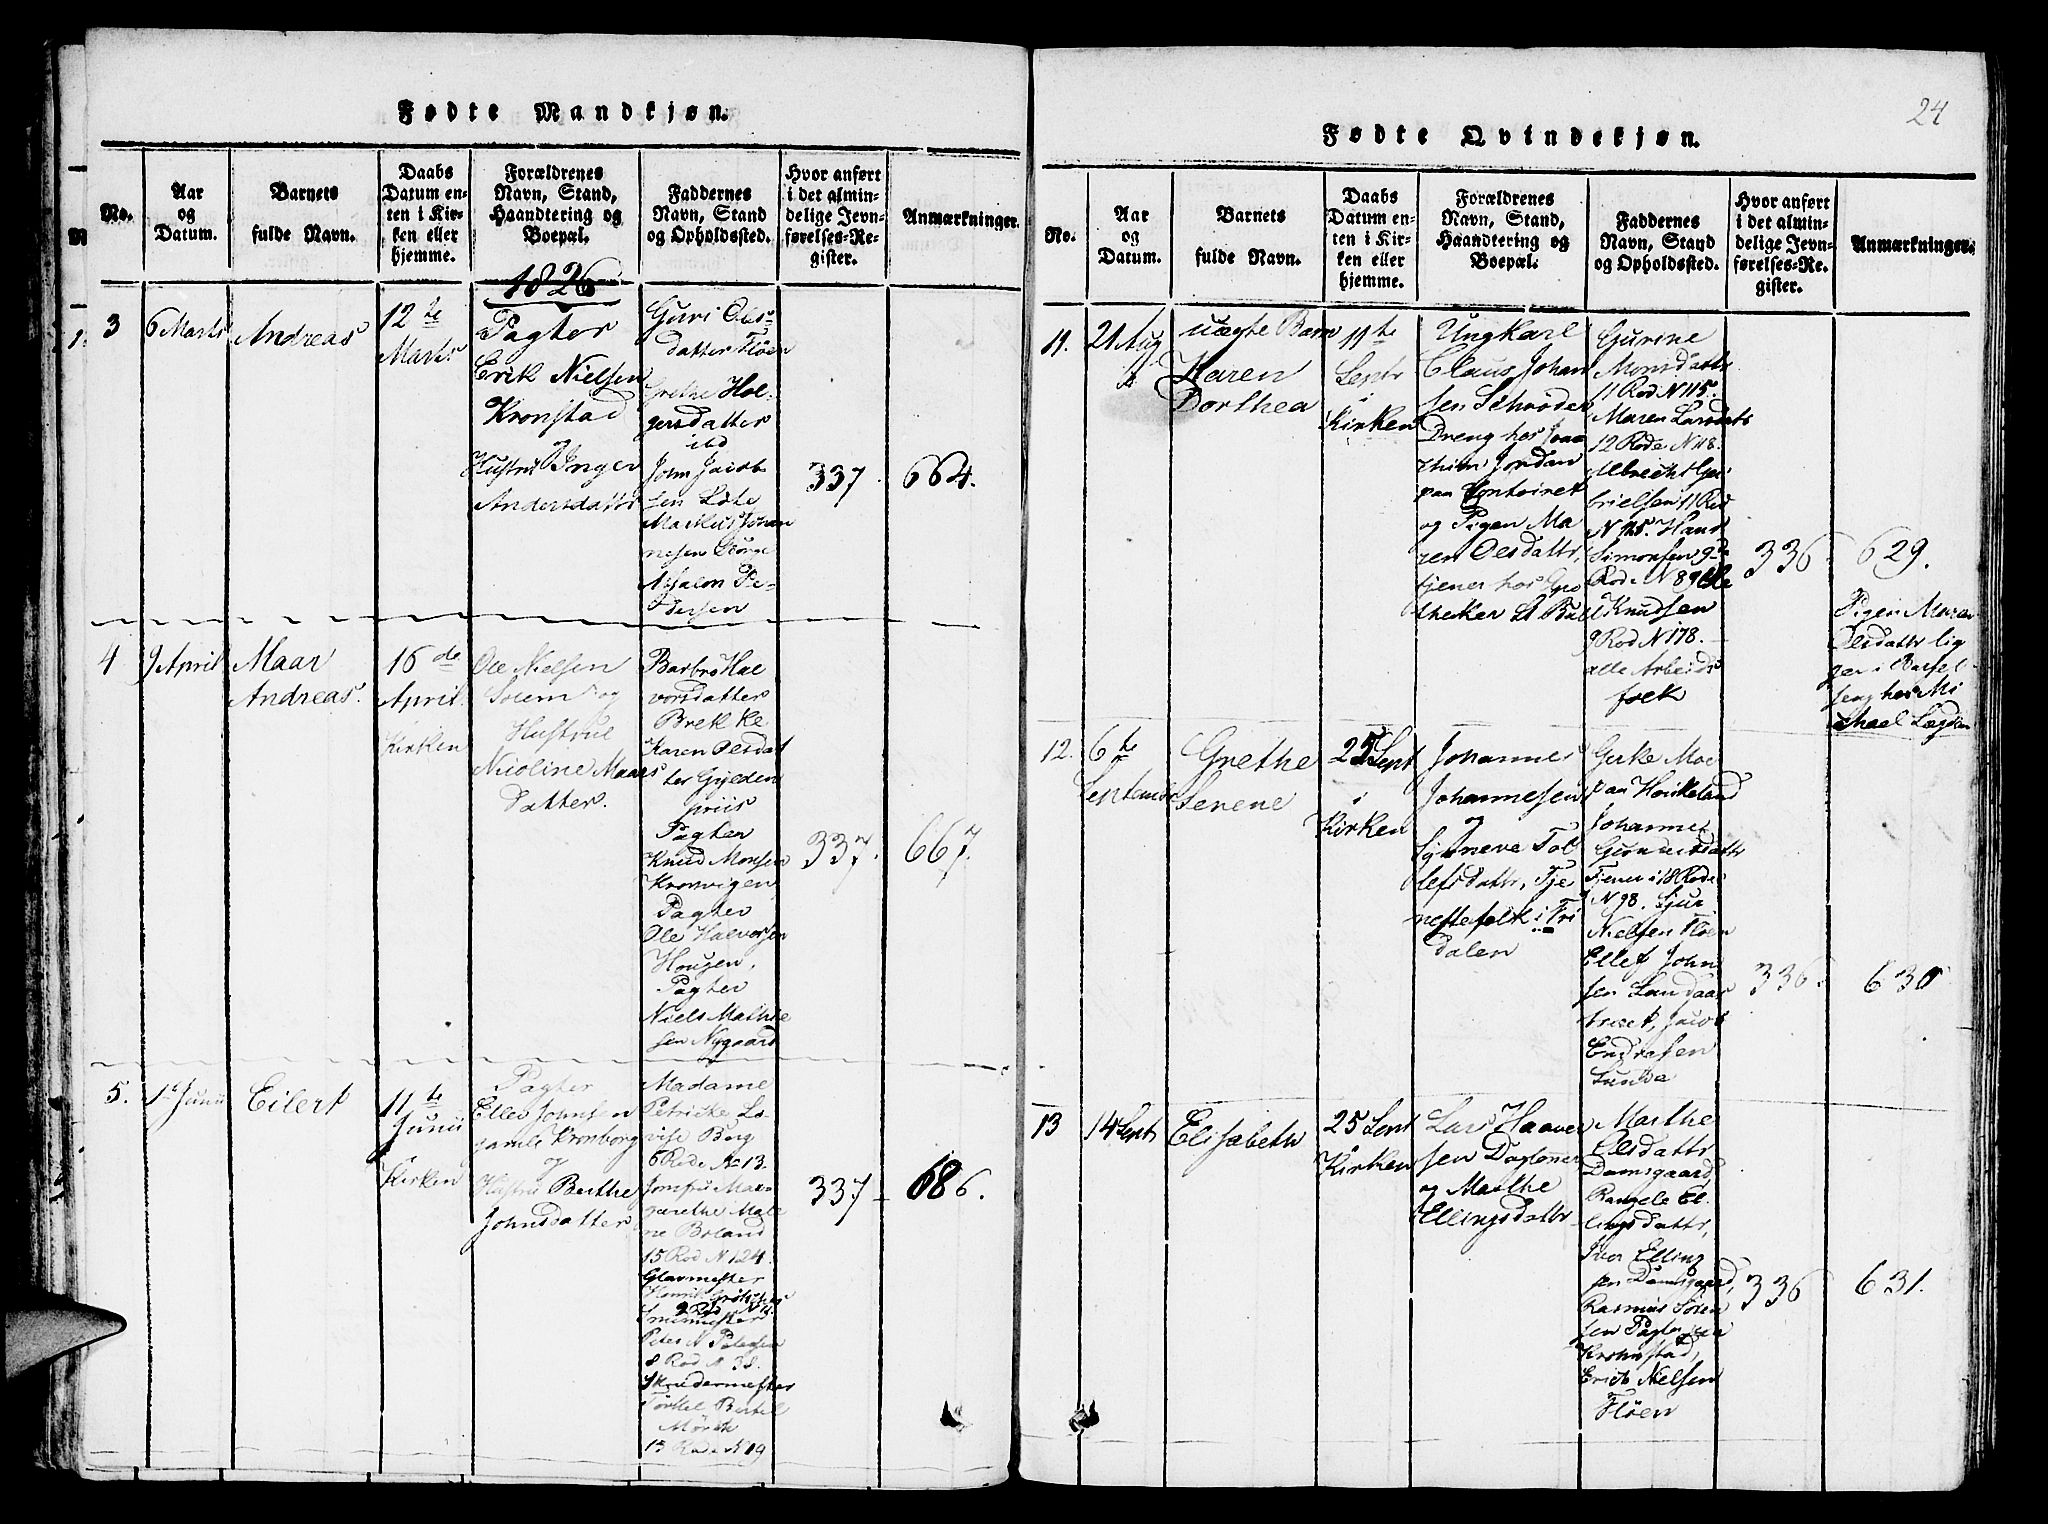 Fødte Mandkjøn.
No.
Aar
og
Datum.
Barnets
fulde Navn.
Daabs
Datum en-
ten i Kir-
ken eller
hjemme.
Forældrenes
Navn, Stand,
Haandtering og
Boepæl.
Faddernes
Navn, Stand
og Opholdssted.
Hvor anført
i det almin-
delige Jevn-
førelses-Re-
gister.
Anmærkninger.
1826
3
6 Marts
Andreas
12te
Marts
Pagter
Erik Nielsen
Kronstad
og
Hustru Inger
Andersdatter
Guri Ols-
datter Fløen
Grethe Hol-
gersdatter
ibd
John Jacob-
sen
Markus Johan
nesen
Absalon Pe-
dersen
337
664.
4
9 April
Maar
Andreas.
16de
April
Kirken
Ole Nielsen
og
Hustrue
Nicoline Maars
datter.
Barbro Hal
vorsdatter
Brekke
Karen Olsdat
ter Gylden
priis
Pagter
Knud Monsen
Kronvigen
Pagter
Ole Halvorsen
Hougen,
Pagter
Niels Mathie
sen Nygaard
337.
667.
5.
1ste Junii
Eilert
11te
Junii
Kirken
Pagter
Ellef Johnsen
gamle Kronborg
og
Hustru Berthe
Johnsdatter
Madame
Petricke Lo-
vise Berg
6 Rode No 13.
Jomfru Mar-
garethe Male
ne Boland
15 Rod N 124.
Glarmester
Henrik
2 Rod N
Peter N Petersen
8 Rod N 38.
Skredermester
Torkel Bertel
Mørch
15 Rode N 19
337-
686.
24
Fødte Qvindekjøn.
No.
Aar
og
Datum.
Barnets
fulde Navn.
Daabs
Datum en-
ten i Kir-
ken eller
hjemme.
Forældrenes
Navn, Stand,
Haandtering og
Boepæl.
Faddernes
Navn, Stand
og Opholdssted.
Hvor anført
i det almin-
delige Jevn-
førelses-Re-
gister.
Anmærkninger.
11.
21 Aug
uægte Barn
Karen
Dorthea
11te
Septr
i
Kirken
Ungkarl
Claus Johan
sen Schrøder
Dreng hos Joac
him Jordan
paa Contoiret
og Pigen Ma
ren Olsdattr,
tjener hos Apo
theker
Gurine
Monsdattr
11 Rod N 115.
Maren Larsdattr
12 Rode N 118.
Albrecht Ga-
brielsen 11 Rod
N 115. Hans
Simonsen 9de
Rode N 89 Ole
Knudsen
9 Rod N 178.
alle Arbeids
folk
336
629.
Pigen Maren
Olsdattr lig
ger i Barsel
seng hos Mi
chael
12.
6te
September
Grethe
Serene
25 Sept
i
Kirken
Johannes
Johannesen
og
Synneve Tol
lefsdattr, Tje
nestefolk i Fri
dalen
Gerke Moe
paa Haukeland
Johanne
Gunnersdattr
Tjener i 18 Rode
N 98. Sjur
Nielsen Fløen
Ellef John
sen Landaas
træet, Jacob
Endresen
Sunde
336.
630
13
14 Septr
Elisabeth
25 Sept
i
Kirken
Lars Haaver
sen Dagløner
og Marthe
Ellingsdattr
Marthe
Olsdattr
Damsgaard,
Rangele El-
lingsdattr,
Iver Elling
sen Damsgaard,
Rasmus Søren
sen Pagter paa
Kronstad,
Erich Nielsen
Fløen
336
631.